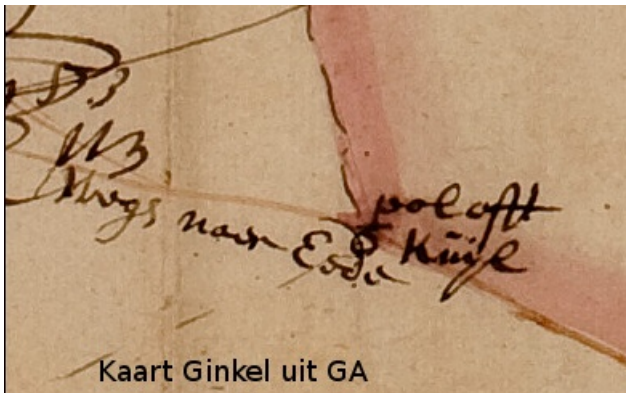 83
113
Wegh naer Eede
pol offt
Kuijl
Kaart Ginkel uit GA